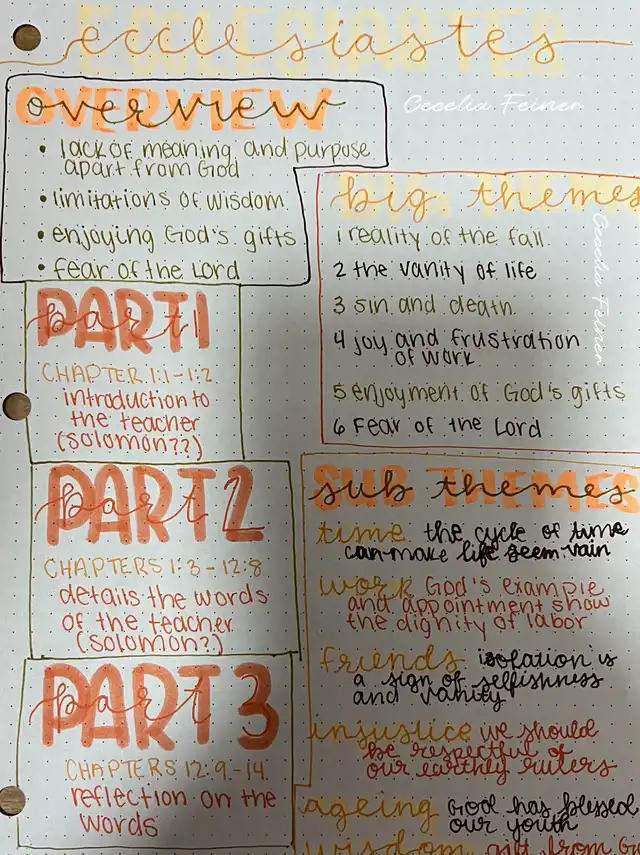 ecclesiastes
overview
Cecelia Feiner
• lack of meaning and purpose
apart from God
• limitations of wisdom
• enjoying God's gifts
• fear of the Lord
big themes
1 reality of the fall
2 the vanity of life
3 sin and death
4 joy and frustration
of work
5 enjoyment of God's gifts
6 Fear of the Lord
Cecelia Feiner
PART 1
part 1
CHAPTER 1:1-1:2
introduction to
the teacher
(solomon??)
PART 2
part 2
CHAPTERS 1:3-12:8
details the words
of the teacher
(solomon?)
PART 3
part 3
CHAPTERS 12:9-14
reflection on the
words
sub themes
time the cycle of time
can make life seem vain
work God's example
and appointment show
the dignity of labor
friends isolation is
a sign of selfishness
and vanity
injustice we should
be respectful of
our earthly rulers
ageing God has blessed
our youth
wisdom gift from